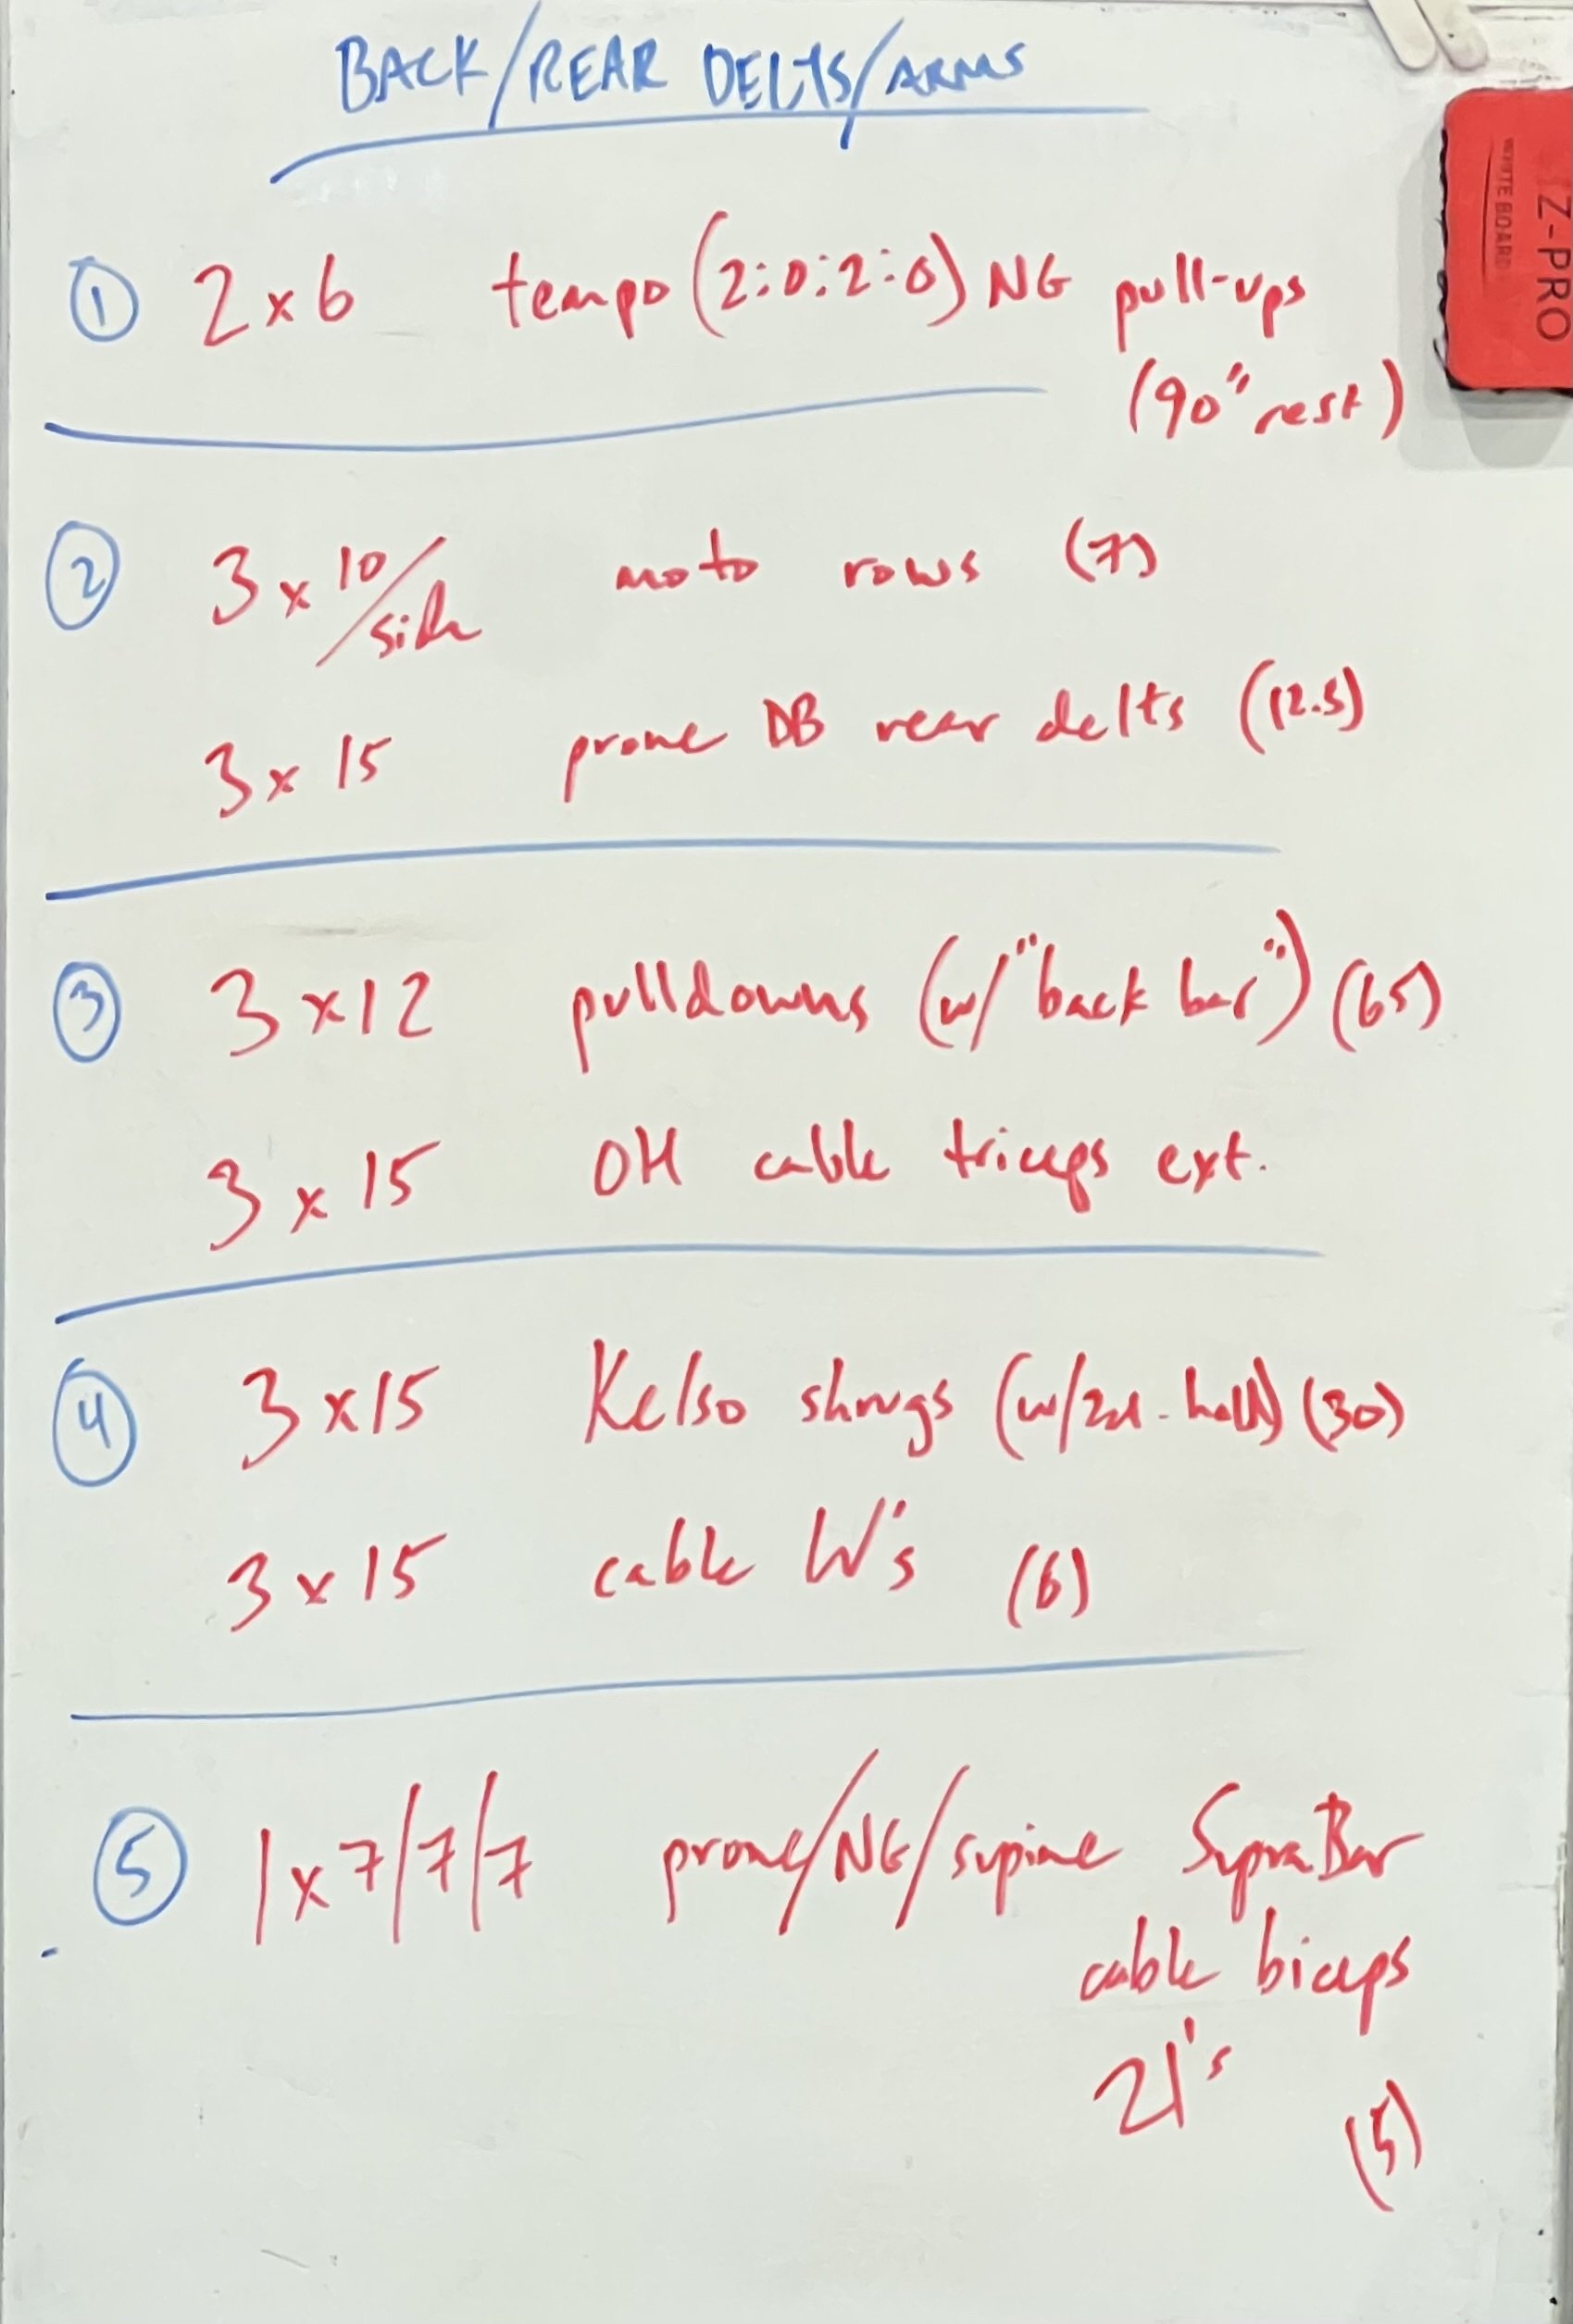 BACK/REAR DELTS/ARMS
① 2x6 tempo (2:0:2:0) NG pull-ups
(90" rest)
② 3x10/side moto rows (7)
3x15 prone DB rear delts (12.5)
③ 3x12 pulldowns (w/"back bar") (65)
3x15 OH cable triceps ext.
④ 3x15 Kelso shrugs (w/2s. hold) (30)
3x15 cable W's (6)
⑤ 1x7/7/7 prone/NG/supine SupraBar
cable biceps
21's
(5)
Z-PRO
WHITE BOARD